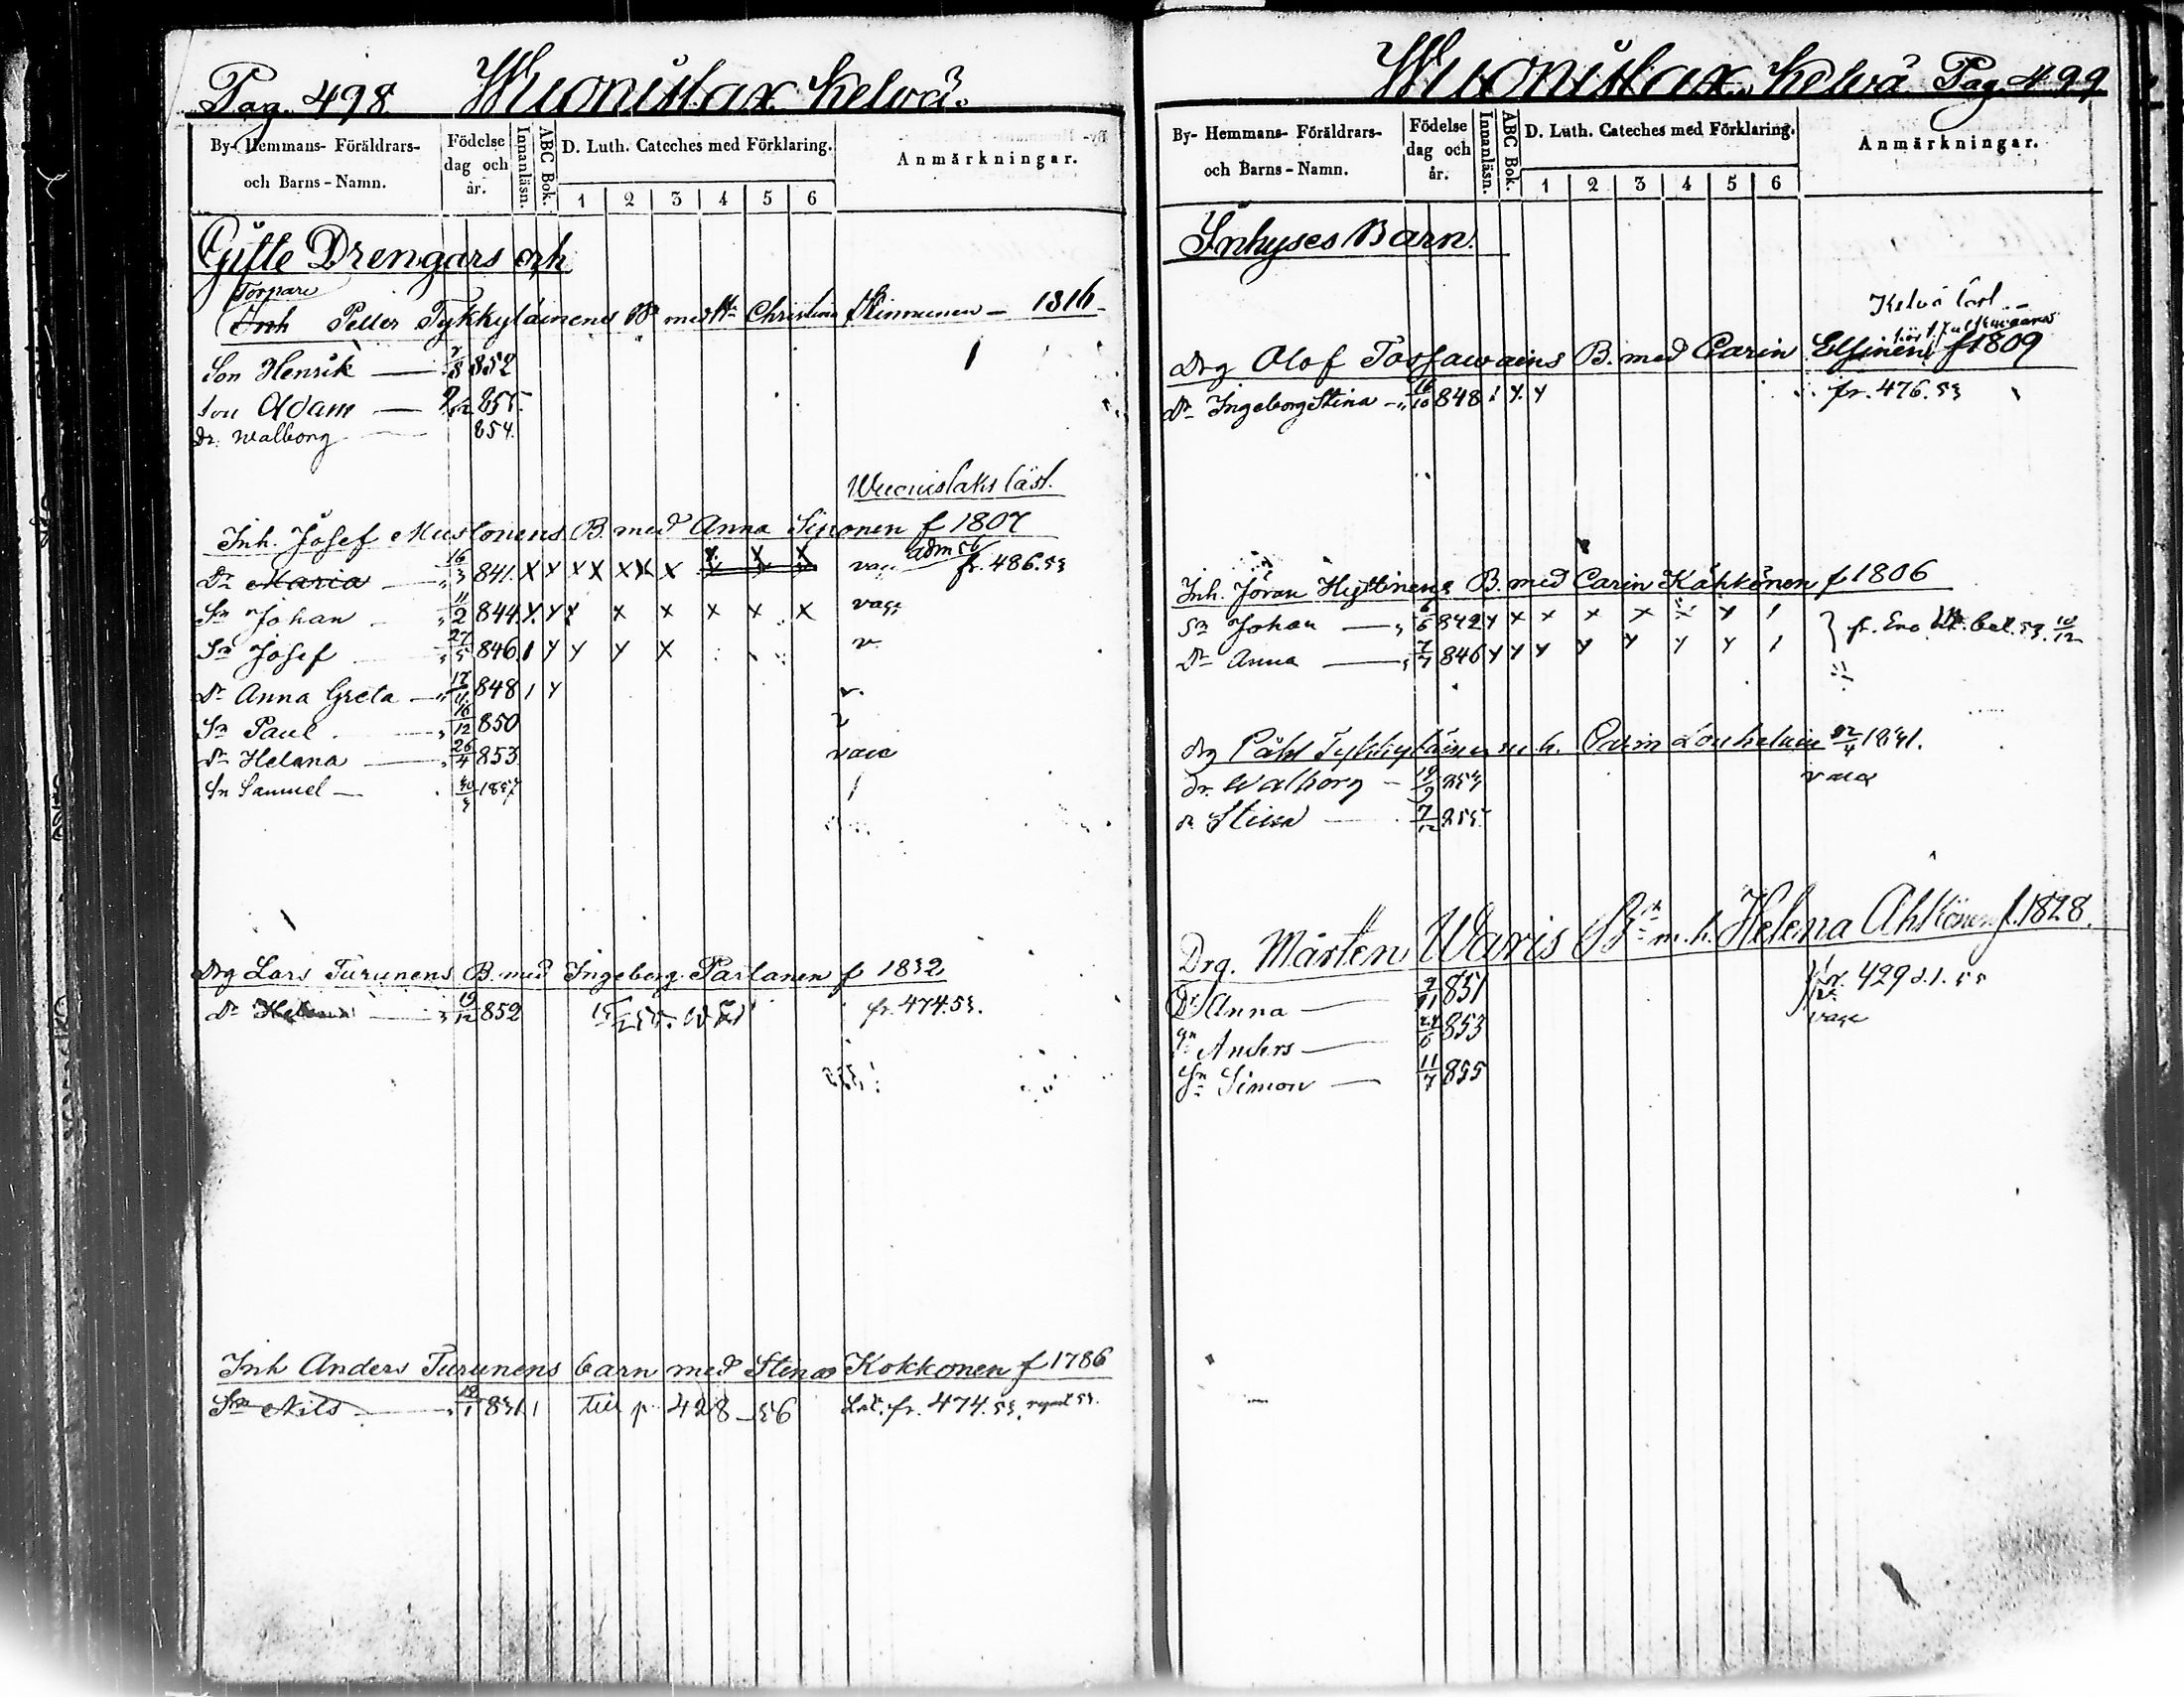 Pag. 498. Wuonislax Kelvä.
By- Hemmans- Föräldrars- och Barns-Namn.
Födelse dag och år.
Innanläsn.
ABC Bok.
D. Luth. Cateches med Förklaring.
1 2 3 4 5 6
Anmärkningar.
Gifte Drengars och
Torpare
Inh Petter Tykkyläinens B. med Christina Kinnunen — 1816
Son Henrik — 852
Son Adam — 855
Dr. Walborg 854
Wuonislaks läsl.
Inh. Josef Mustonens B. med Anna Sipponen f 1807
Dr Maria 16/3 841 X Y Y X X X X X X X adm 56 fr. 486.53
Sn Johan 11/2 844 Y. Y Y X X X X X
Sn Josef 27/5 846 1 Y Y Y X v
Dr Anna Greta 848 1 Y v.
Sn Paul 16/12 850 v
Dr Helena 26/4 853
Sn Samuel 30/3 1857
Drg Lars Turunens B. med Ingeborg Partanen f 1832
Dr Helena 19/12 852 fr. 474.53.
Inh Anders Turunens barn med Stina Kokkonen f 1786
Sn Nils 831 1 till p 428 56 fr. 474.53.
Wuonislax Kelvä Pag 499
By- Hemmans- Föräldrars- och Barns-Namn.
Födelse dag och år.
Innanläsn.
ABC Bok.
D. Luth. Cateches med Förklaring.
1 2 3 4 5 6
Anmärkningar.
Inhyses Barn.
Kelvä läsl.
Drg Olof Tossawains B. med Carin f 1809
Dr Ingeborg Stina 16/10 848 1 Y. Y fr. 476.53
Inh. Jöran Hyttinens B. med Carin Kähkönen f 1806
Sn Johan — 6/6 842 Y X X X X X Y 1 } fr. Eno
Dr Anna — 7/7 846 Y Y Y Y Y Y Y 1
Drg Påhl Tykkyläinen m. h. Carin Louhelain 22/4 1831.
Dr. Walborg
Dr Stina 7/12 855
Drg. Mårten Waris Br m. h. Helena Ahlkönen f. 1828.
Dr Anna 851 fr. 429 d. 1. 55
Sn Anders 853
Sn Simon — 11/7 855